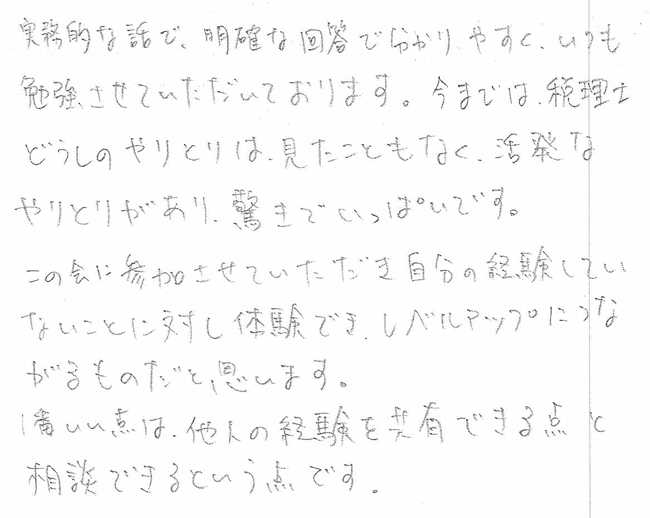 実務的な話で、明確な回答で分かりやすく、いつも
勉強させていただいております。今までは、税理士
どうしのやりとりは、見たこともなく、活発な
やりとりがあり、驚きでいっぱいです。
この会に参加させていただき自分の経験してい
ないことに対し体験でき、レベルアップにつな
がるものだと思います。
1番いい点は、他人の経験を共有できる点と
相談できるという点です。